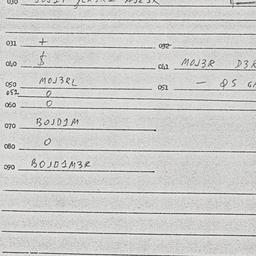 030
031 + 032
040 $ 041 MOJ3R D3
050 MOJ3RL 051 - Q5
052 0
060 0
070 BOJD1M
080 0
090 BOJD1M3R